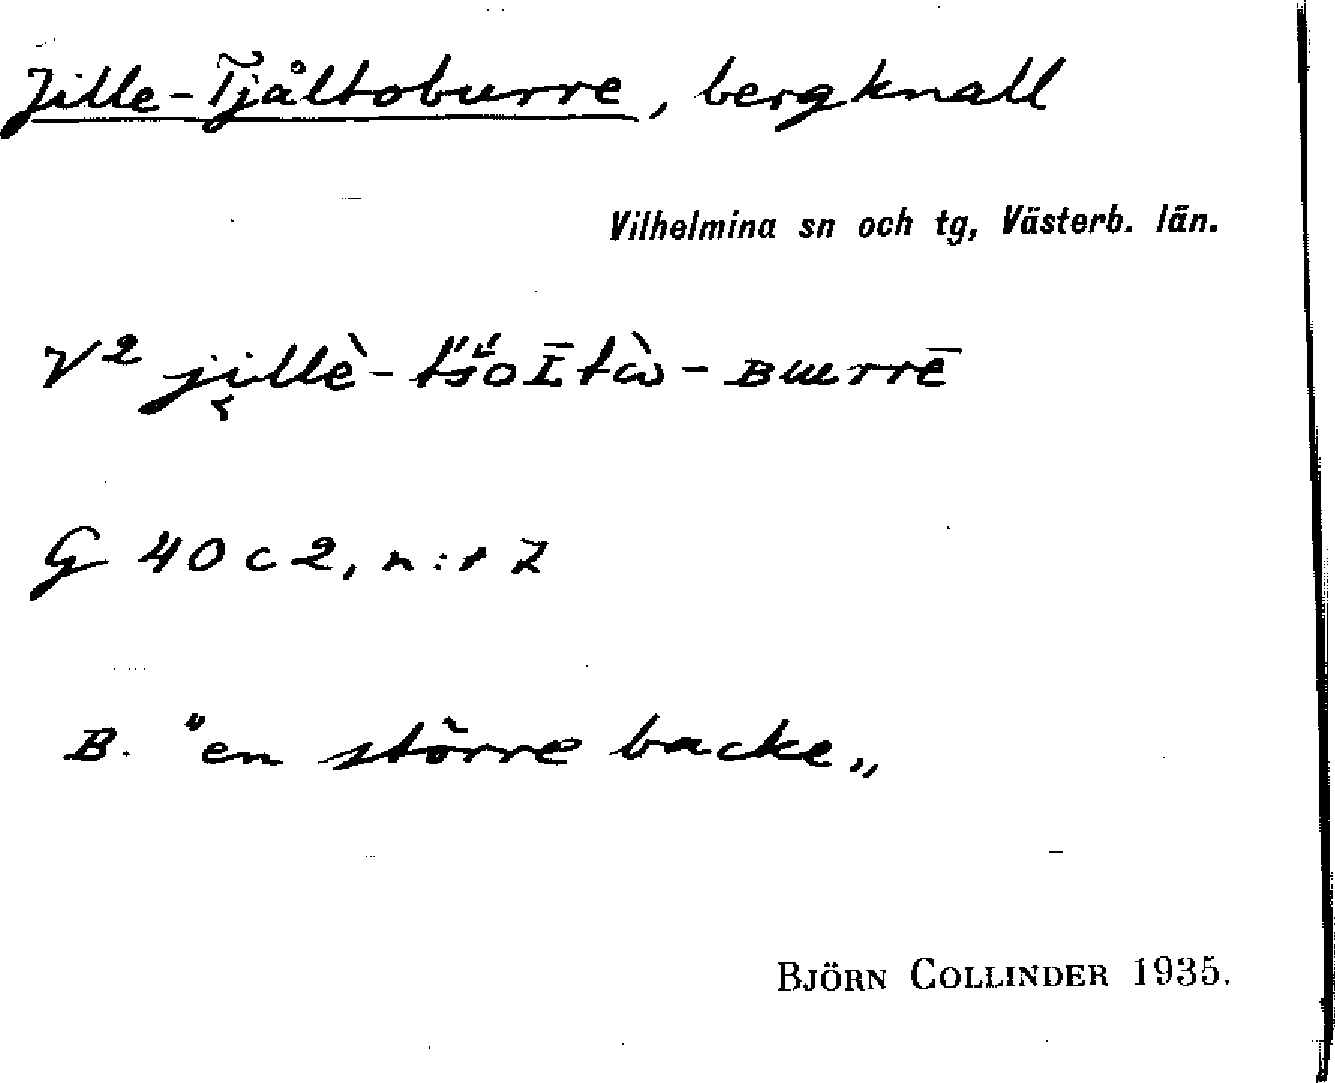 Jille-Tjåltoburre, bergknall
Vilhelmina sn och tg, Västerb. län.
V2 jillè-
G 40 c 2, n:r 7
B. "en större backe„
BJÖRN COLLINDER 1935.